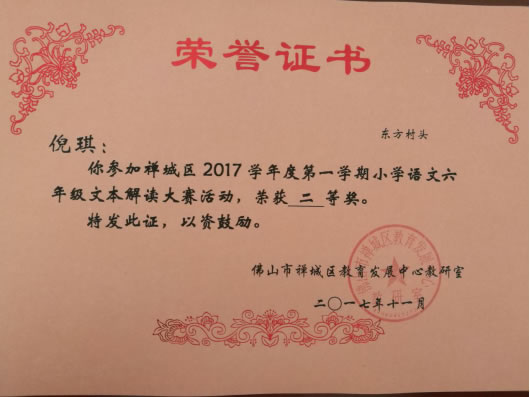 荣誉证书
东方村头
倪琪：
你参加禅城区2017学年度第一学期小学语文六
年级文本解读大赛活动，荣获 二 等奖。
特发此证，以资鼓励。
佛山市禅城区教育发展中心教研室
二〇一七年十一月